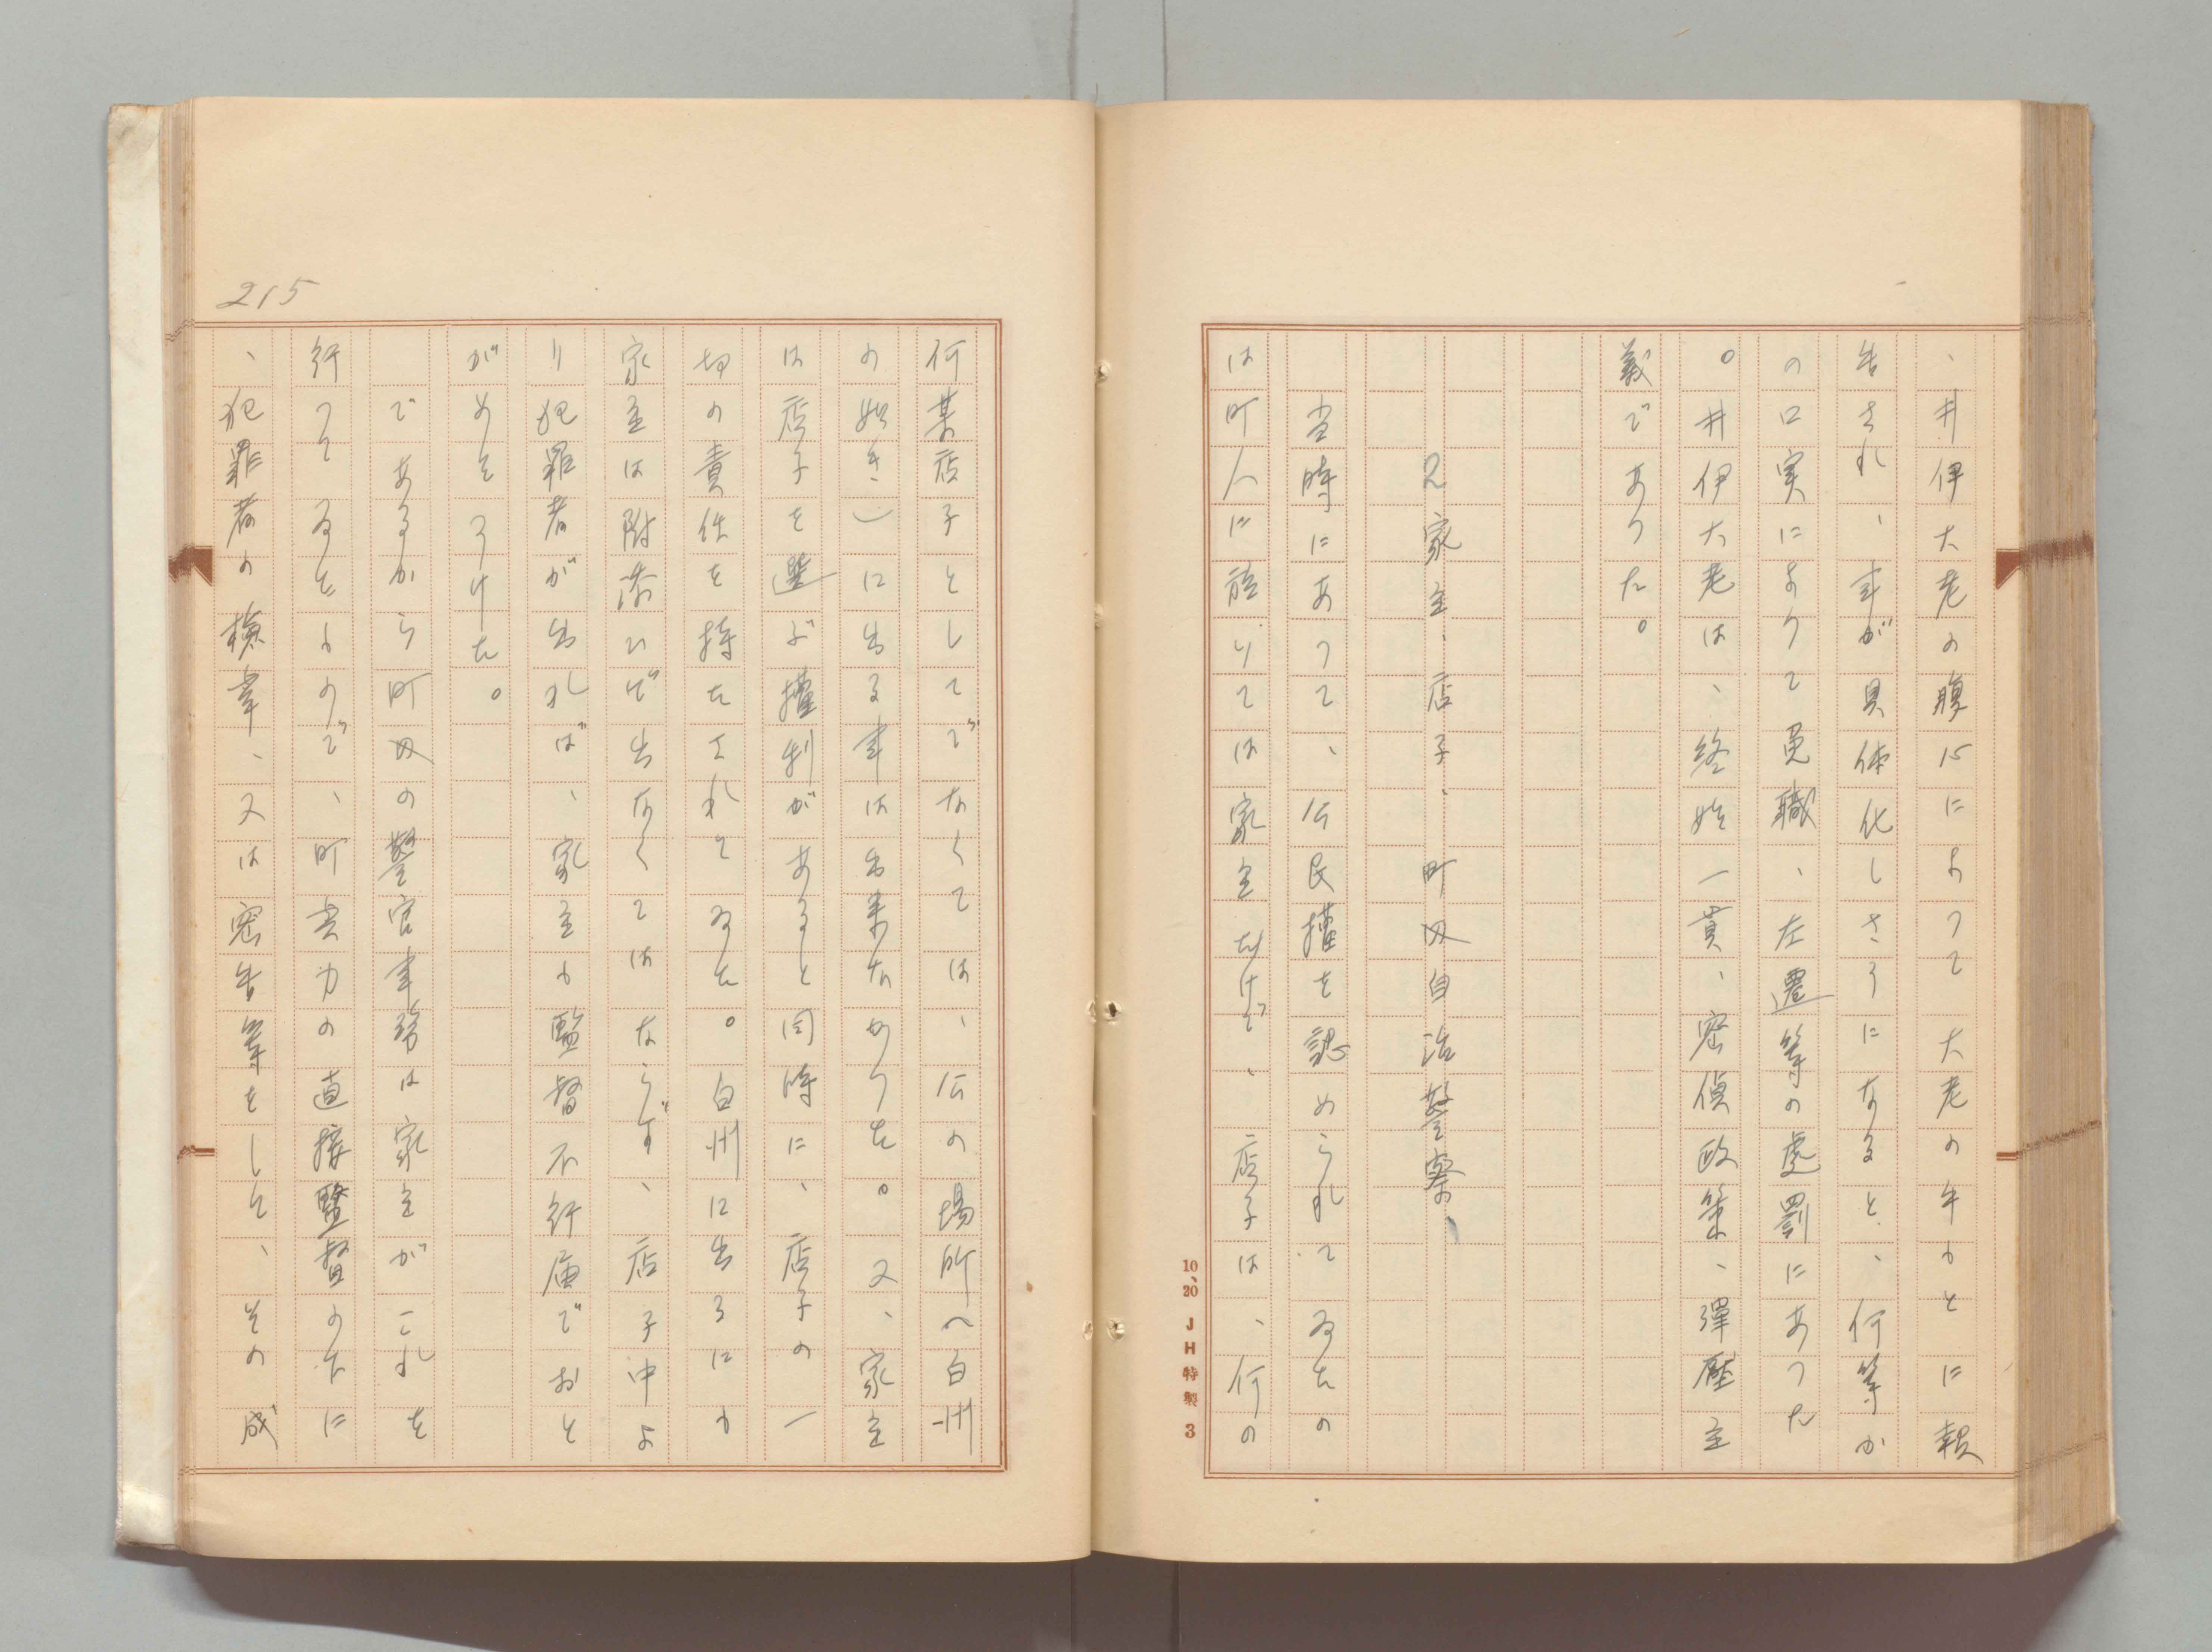 、井伊大老の腹心によつて大老の手もとに報
告され、事が具体化しさうになると、何等か
の口実によりて免職、左遷等の處罰にあつた
。井伊大老は、終始一貫、密偵政策、彈壓主
義であつた。
2家主、店子、町内自治警察、
当時にあつて、公民権を認められてゐたの
は町人に於いては家主だけで、店子は、何の
10、20 JH特製 3
215
何某店子としてでなくては、公の場所へ白州
の如き)に出る事は出来なかつた。又、家主
は店子を選ぶ権利があると同時に、店子の一
切の責任を持たされてゐた。白州に出るにも
家主は附添ひで出なくてはならず、店子中よ
り犯罪者が出れば、家主も監督不行届でおと
がめをうけた。
であるから町内の警官事務は家主がこれを
行つてゐたもので、町奉行の直接監督のもとに
、犯罪者の検挙、又は密告等をして、その成